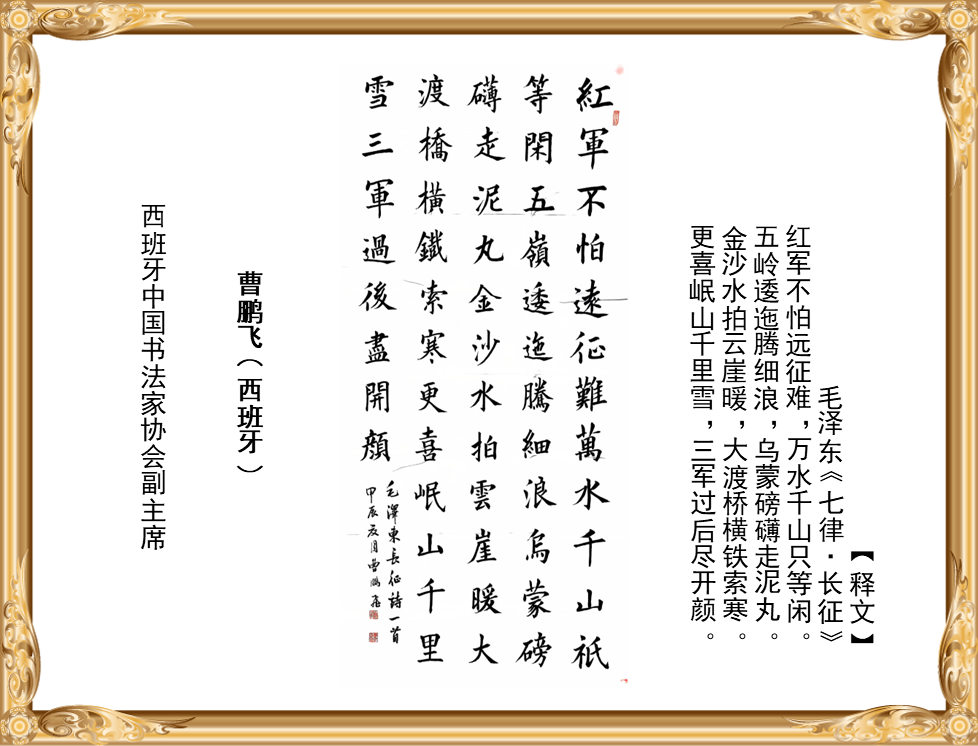 【释文】
毛泽东《七律·长征》
红军不怕远征难,万水千山只等闲。
五岭逶迤腾细浪,乌蒙磅礴走泥丸。
金沙水拍云崖暖,大渡桥横铁索寒。
更喜岷山千里雪,三军过后尽开颜。
紅軍不怕遠征難萬水千山祇
等閑五嶺逶迤騰細浪烏蒙磅
礴走泥丸金沙水拍雲崖暖大
渡橋橫鐵索寒更喜岷山千里
雪三軍過後盡開顏
毛澤東長征詩一首
甲辰夏月曹鵬飛
曹鹏飞(西班牙)
西班牙中国书法家协会副主席